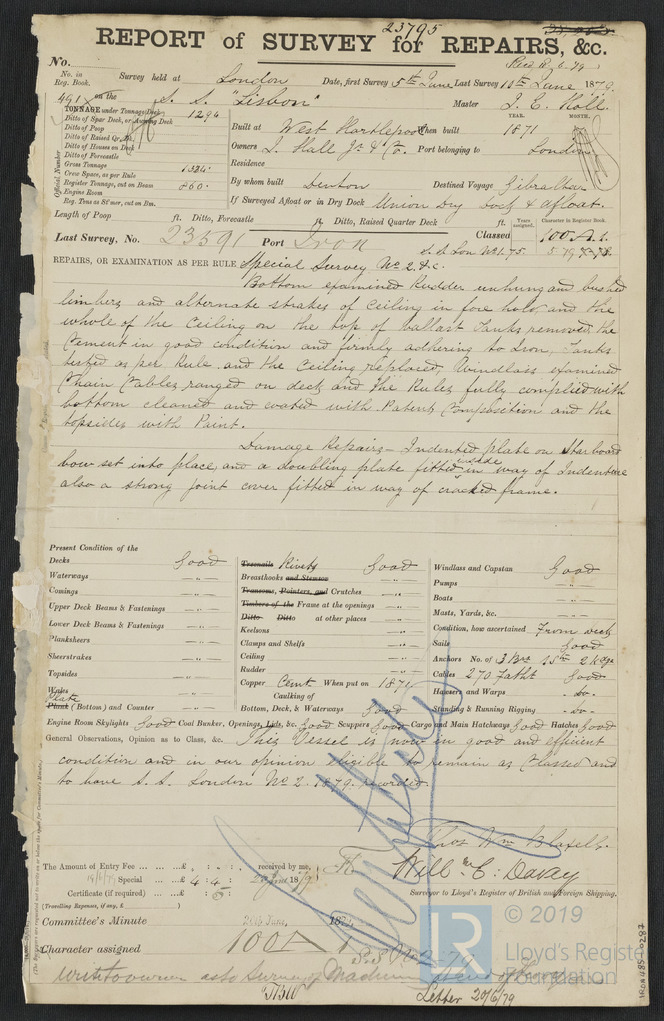 23795
REPORT of SURVEY for REPAIRS, &c.
No.
No. in Reg. Book. Survey held at London Date, first Survey 5th June Last Survey 10th June 1879.
491 on the S. S. "Lisbon" Master J. C. Noll
TONNAGE under Tonnage Deck 1294
Ditto of Spar Deck, or Awning Deck
Ditto of Poop
Ditto of Raised Qr. Dk.
Ditto of Houses on Deck
Ditto of Forecastle
Gross Tonnage
Crew Space, as per Rule
Register Tonnage, cut on Beam 860
Engine Room
Reg. Tons as St'mer, cut on Bm.
Official Number
YEAR. MONTH.
Built at West Hartlepool When built 1871
Owners J. Hall Jr. & Co. Port belonging to London
Residence
By whom built Denton Destined Voyage Gibraltar
If Surveyed Afloat or in Dry Dock Union Dry Dock & afloat.
Length of Poop ft. Ditto, Forecastle ft. Ditto, Raised Quarter Deck ft.
Years assigned. Character in Register Book.
Last Survey, No. 23591 Port Iron Classed 100 A.1.
S. S. Lon No. 1. 75. 5 79
REPAIRS, OR EXAMINATION AS PER RULE Special Survey No. 2. &c.
Bottom examined Rudder unhung and bushed
limbers and alternate strakes of Ceiling in fore hold, and the
whole of the Ceiling on the top of ballast Tanks removed, the
Cement in good condition and firmly adhering to Iron, Tanks
tested as per Rule. and the Ceiling replaced, Windlass examined
Chain Cables ranged on deck and the Rules fully complied with
bottom cleaned and coated with Patent Composition and the
topsides with Paint.
Damage Repairs - Indented plate on Starboard
bow set into place, and a doubling plate fitted inside in way of Indenture
also a strong joint cover fitted in way of cracked frame.
Present Condition of the
Decks Good
Waterways - " -
Comings - " -
Upper Deck Beams & Fastenings - " -
Lower Deck Beams & Fastenings - " -
Planksheers - " -
Sheerstrakes - " -
Topsides - " -
Wales
Plate
Plank (Bottom) and Counter - " -
Treenails Rivets Good
Breasthooks and Stemson - " -
Transoms, Pointers, and Crutches - " -
Timbers of the Frame at the openings - " -
Ditto Ditto at other places - " -
Keelsons - " -
Clamps and Shelfs - " -
Ceiling - " -
Rudder - " -
Copper Cemt. When put on 1871
Caulking of
Bottom, Deck, & Waterways Good
Windlass and Capstan Good
Pumps - " -
Boats - " -
Masts, Yards, &c. - " -
Condition, how ascertained From deck
Sails Good
Anchors No. of 3 Brs 1 Sth 2 Kgs
Cables 270 faths Good
Hawsers and Warps - do -
Standing & Running Rigging - do -
Engine Room Skylights Good Coal Bunker, Openings, Lids, &c. Good Scuppers Good Cargo and Main Hatchways Good Hatches Good
General Observations, Opinion as to Class, &c. This Vessel is now in good and efficient
condition and in our opinion eligible to remain as Classed and
to have S. S. London No. 2. 1879. recorded.
The Amount of Entry Fee ... ... ... £ : : received by me,
19/6/79 Special ... ... £ 4 : 4 :
Certificate (if required) ... ... £
(Travelling Expenses, if any, £ )
Will m. C: Davey
Surveyor to Lloyd's Register of British and Foreign Shipping.
Committee's Minute 20th June, 187
Character assigned 100 A 1
S.S No 2 - 79
Write to owner as to Survey of Machinery
Letter 20/6/79
© 2019
LR
Lloyd's Register
Foundation